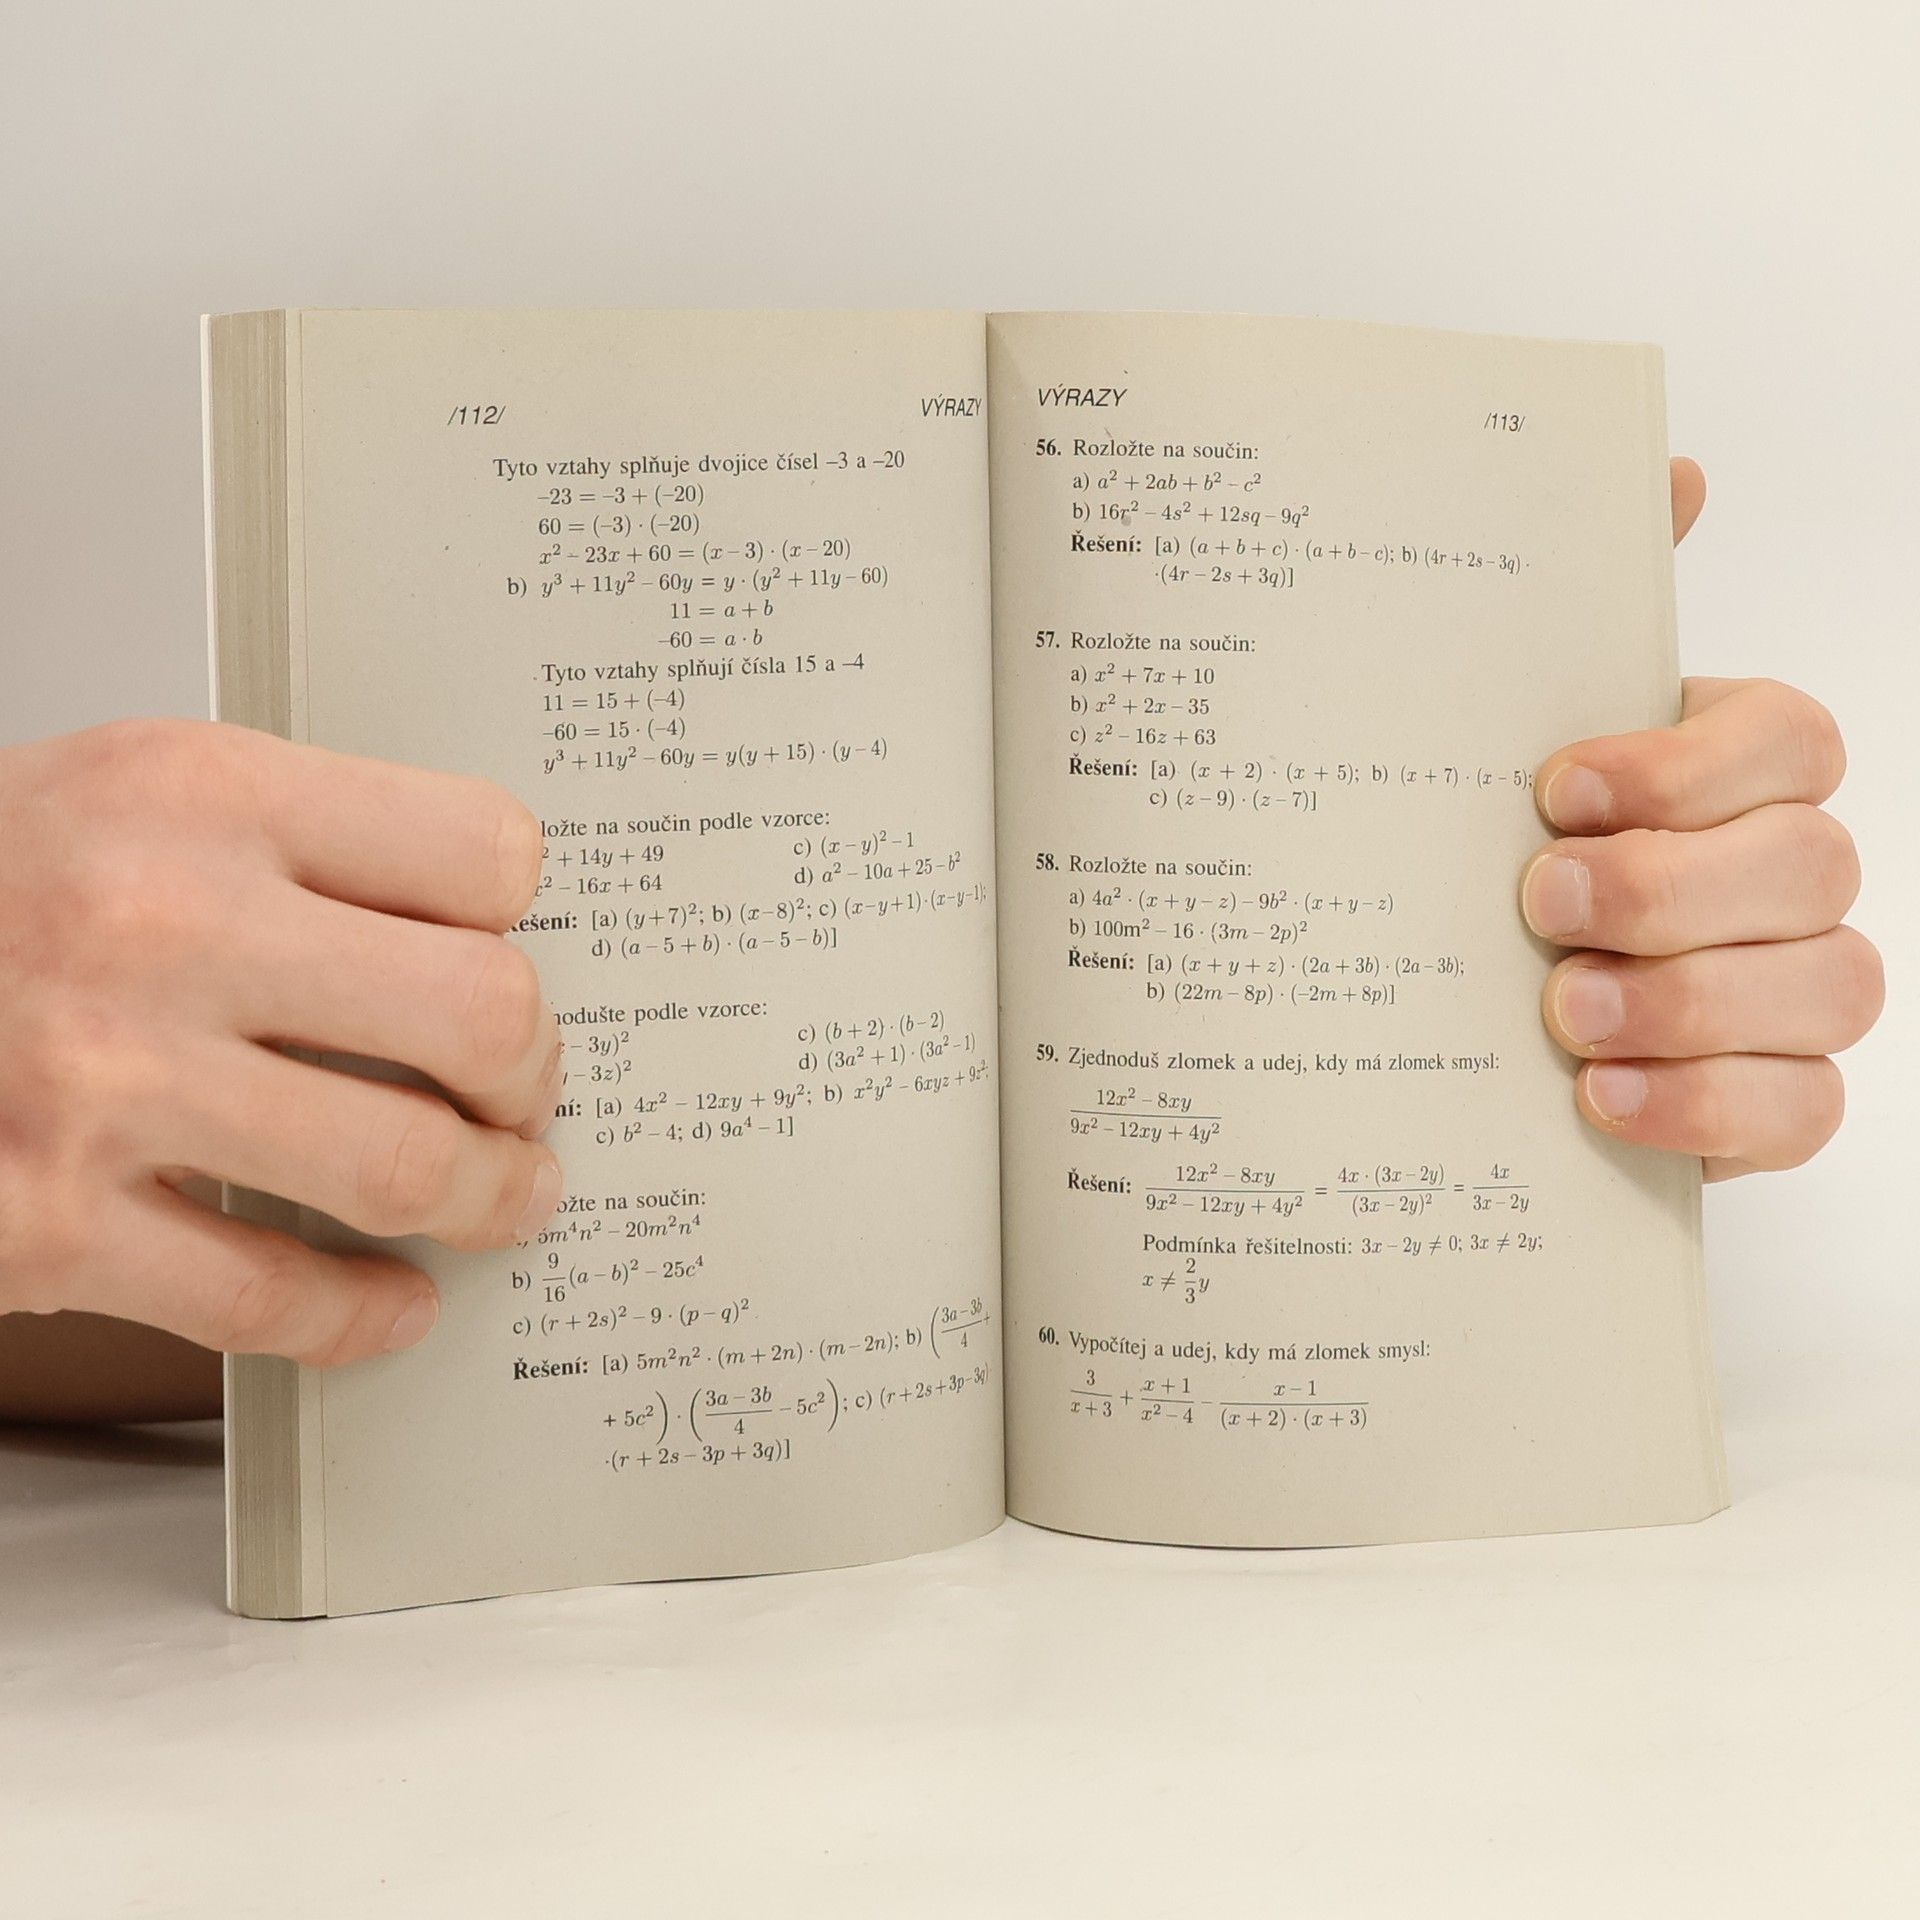 /112/ VÝRAZY
Tyto vztahy splňuje dvojice čísel –3 a –20
–23 = –3 + (–20)
60 = (–3) · (–20)
x² – 23x + 60 = (x – 3) · (x – 20)
b) y³ + 11y² – 60y = y · (y² + 11y – 60)
11 = a + b
–60 = a · b
Tyto vztahy splňují čísla 15 a –4
11 = 15 + (–4)
–60 = 15 · (–4)
y³ + 11y² – 60y = y(y + 15) · (y – 4)
na součin podle vzorce:
² + 14y + 49 c) (x – y)² – 1
² – 16x + 64 d) a² – 10a + 25 – b²
[a) (y+7)²; b) (x–8)²; c) (x–y+1)·(x–y–1);
d) (a – 5 + b) · (a – 5 – b)]
podle vzorce:
– 3y)² c) (b + 2) · (b – 2)
– 3z)² d) (3a² + 1) · (3a² – 1)
[a) 4x² – 12xy + 9y²; b) x²y² – 6xyz + 9z²;
c) b² – 4; d) 9a⁴ – 1]
na součin:
5m⁴n² – 20m²n⁴
b) 9/16 (a – b)² – 25c⁴
c) (r + 2s)² – 9 · (p – q)²
Řešení: [a) 5m²n² · (m + 2n) · (m – 2n); b) ((3a – 3b)/4 +
+ 5c²) · ((3a – 3b)/4 – 5c²); c) (r + 2s + 3p – 3q)·
·(r + 2s – 3p + 3q)]
VÝRAZY /113/
56. Rozložte na součin:
a) a² + 2ab + b² – c²
b) 16r² – 4s² + 12sq – 9q²
Řešení: [a) (a + b + c) · (a + b – c); b) (4r + 2s – 3q) ·
·(4r – 2s + 3q)]
57. Rozložte na součin:
a) x² + 7x + 10
b) x² + 2x – 35
c) z² – 16z + 63
Řešení: [a) (x + 2) · (x + 5); b) (x + 7) · (x – 5);
c) (z – 9) · (z – 7)]
58. Rozložte na součin:
a) 4a² · (x + y – z) – 9b² · (x + y – z)
b) 100m² – 16 · (3m – 2p)²
Řešení: [a) (x + y + z) · (2a + 3b) · (2a – 3b);
b) (22m – 8p) · (–2m + 8p)]
59. Zjednoduš zlomek a udej, kdy má zlomek smysl:
12x² – 8xy
9x² – 12xy + 4y²
Řešení: (12x² – 8xy)/(9x² – 12xy + 4y²) = (4x · (3x – 2y))/((3x – 2y)²) = 4x/(3x – 2y)
Podmínka řešitelnosti: 3x – 2y ≠ 0; 3x ≠ 2y;
x ≠ 2/3 y
60. Vypočítej a udej, kdy má zlomek smysl:
3/(x + 3) + (x + 1)/(x² – 4) – (x – 1)/((x + 2) · (x + 3))